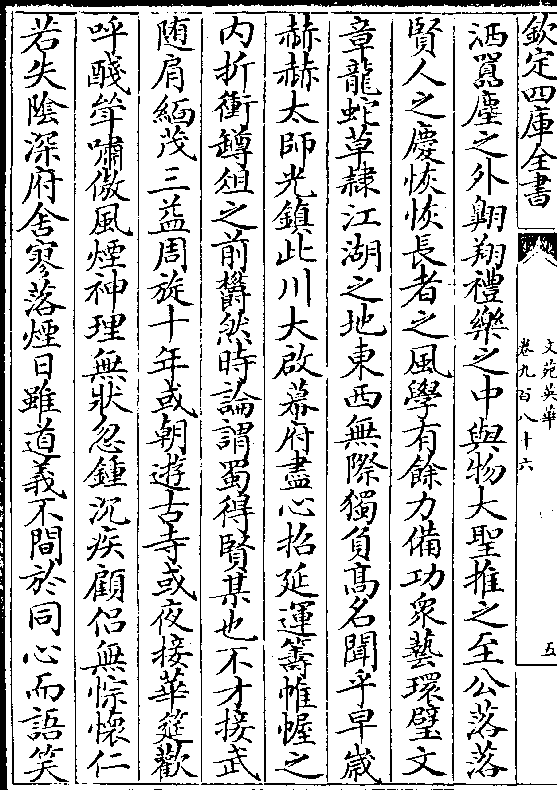 欽定四庫全書
文苑英華
卷九百八十六
五
洒嚣塵之外翺翔禮樂之中與物大聖推之至公落落
賢人之慶恢恢長者之風學有餘力備功衆藝環璧文
章龍蛇草隷江湖之地東西無際獨負髙名聞乎早歳
赫赫太師光鎮此川大啟幕府盡心招延運籌帷幄之
内折衝鐏俎之前欝然時論謂蜀得賢某也不才接武
随肩緬茂三益周旋十年或朝遊古寺或夜接華筵歡
呼醆斝嘯傲風煙神理無狀忽鍾沉疾顧侣無悰懐仁
若失陰深府舍寥落煙日雖道義不間於同心而語笑